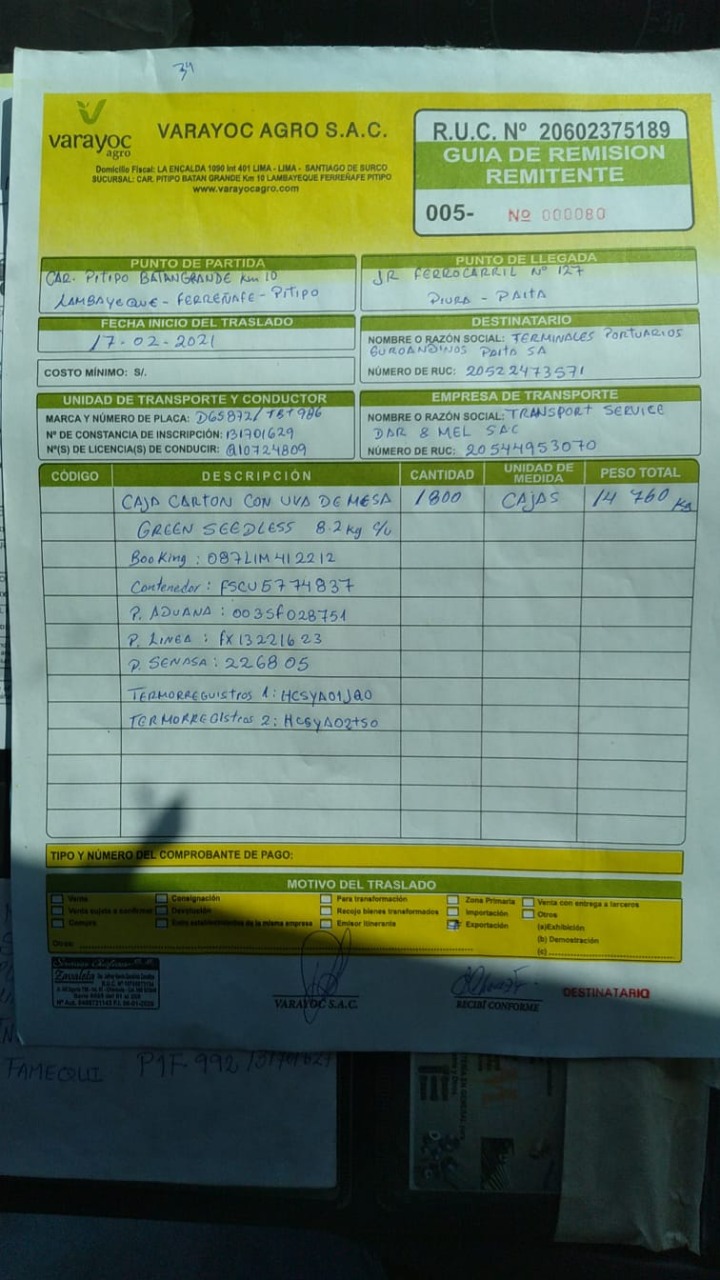 34
varayoc
agro
VARAYOC AGRO S.A.C.
Domicilio Fiscal: LA ENCALDA 1090 Int 401 LIMA - LIMA - SANTIAGO DE SURCO
SUCURSAL: CAR. PITIPO BATAN GRANDE Km 10 LAMBAYEQUE FERREÑAFE PITIPO
www.varayocagro.com
R.U.C. Nº 20602375189
GUIA DE REMISION
REMITENTE
005- Nº 000080
PUNTO DE PARTIDA
CAR. PITIPO BATANGRANDE Km 10
LAMBAYEQUE - FERREÑAFE - PITIPO
PUNTO DE LLEGADA
JR FERROCARRIL Nº 127
PIURA - PAITA
FECHA INICIO DEL TRASLADO
17-02-2021
COSTO MÍNIMO: S/.
DESTINATARIO
NOMBRE O RAZÓN SOCIAL: TERMINALES PORTUARIOS
EUROANDINOS PAITA SA
NÚMERO DE RUC: 20522473571
UNIDAD DE TRANSPORTE Y CONDUCTOR
MARCA Y NÚMERO DE PLACA: D6S872/
Nº DE CONSTANCIA DE INSCRIPCIÓN: 131701629
Nº(S) DE LICENCIA(S) DE CONDUCIR: Q10724809
EMPRESA DE TRANSPORTE
NOMBRE O RAZÓN SOCIAL: TRANSPORT SERVICE
DAR & MEL SAC
NÚMERO DE RUC: 20544953070
CÓDIGO DESCRIPCIÓN CANTIDAD UNIDAD DE MEDIDA PESO TOTAL
CAJA CARTON CON UVA DE MESA 1800 CAJAS 14 760 Kg
GREEN SEEDLESS 8.2 kg c/u
Booking: 087LIM412212
Contenedor: FSCU5774837
P. ADUANA: 0035F028751
P. LINEA: FX13221623
P. SENASA: 226805
TERMORREGUISTROS 1: HCSYA01JQ0
TERMORREGISTROS 2: HCSYA02TS0
TIPO Y NÚMERO DEL COMPROBANTE DE PAGO:
MOTIVO DEL TRASLADO
Venta Consignación Para transformación Zona Primaria Venta con entrega a terceros
Venta sujeta a confirmar Devolución Recojo bienes transformados Importación Otros
Compra Entre establecimientos de la misma empresa Emisor itinerante Exportación (a)Exhibición
(b) Demostración
Otros: (c)
Zavaleta
VARAYOC S.A.C.
RECIBÍ CONFORME
DESTINATARIO
TAMEQUI P1F-992